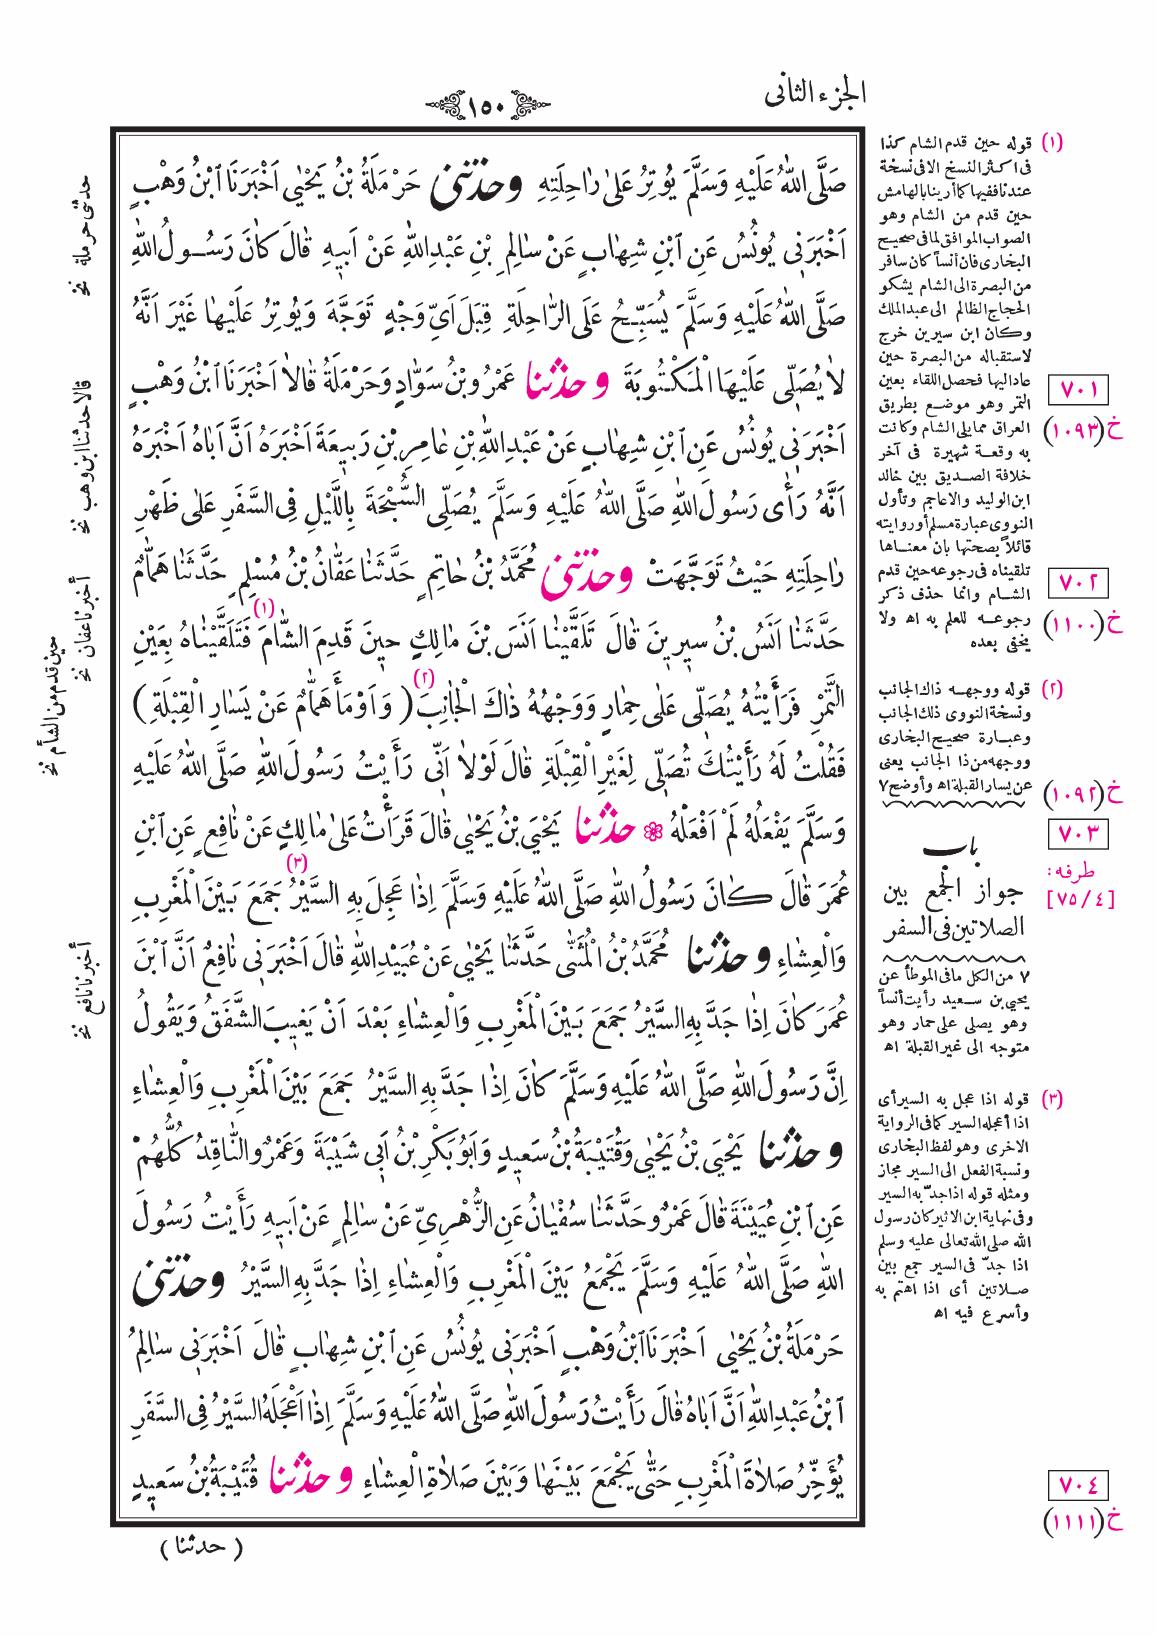 الجزء الثانى
١٥٠
صَلَّى اللهُ عَلَيْهِ وَسَلَّمَ يُوتِرُ عَلىٰ رَاحِلَتِهِ وحَدَّثَنِى حَرْمَلَةُ بْنُ يَحْيٰى اَخْبَرَنَا ابْنُ وَهْبٍ
اَخْبَرَنِى يُونُسُ عَنِ ابْنِ شِهَابٍ عَنْ سَالِمِ بْنِ عَبْدِاللهِ عَنْ اَبيهِ قَالَ كَانَ رَسُولُ اللهِ
صَلَّى اللهُ عَلَيْهِ وَسَلَّمَ يُسَبِّحُ عَلَى الرَّاحِلَةِ قِبَلَ اَىِّ وَجْهٍ تَوَجَّهَ وَيُوتِرُ عَلَيْهَا غَيْرَ اَنَّهُ
لَا يُصَلِّى عَلَيْهَا الْمَكْتُوبَةَ وحَدَّثَنَا عَمْرُو بْنُ سَوَّادٍ وَحَرْمَلَةُ قَالَا اَخْبَرَنَا ابْنُ وَهْبٍ
اَخْبَرَنِى يُونُسُ عَنِ ابْنِ شِهَابٍ عَنْ عَبْدِاللهِ بْنِ عَامِرِ بْنِ رَبِيعَةَ اَخْبَرَهُ اَنَّ اَبَاهُ اَخْبَرَهُ
اَنَّهُ رَأٰى رَسُولَ اللهِ صَلَّى اللهُ عَلَيْهِ وَسَلَّمَ يُصَلِّى السُّبْحَةَ بِاللَّيْلِ فِى السَّفَرِ عَلىٰ ظَهْرِ
رَاحِلَتِهِ حَيْثُ تَوَجَّهَتْ وحَدَّثَنِى مُحَمَّدُ بْنُ حَاتِمٍ حَدَّثَنَا عَفَّانُ بْنُ مُسْلِمٍ حَدَّثَنَا هَمَّامٌ
حَدَّثَنَا اَنَسُ بْنُ سِيرِينَ قَالَ تَلَقَّيْنَا اَنَسَ بْنَ مَالِكٍ حِينَ قَدِمَ الشَّامَ (١) فَتَلَقَّيْنَاهُ بِعَيْنِ
التَّمْرِ فَرَأَيْتُهُ يُصَلِّى عَلىٰ حِمَارٍ وَوَجْهُهُ ذَاكَ الْجَانِبَ (٢) ( وَاَوْمَأَ هَمَّامٌ عَنْ يَسَارِ الْقِبْلَةِ )
فَقُلْتُ لَهُ رَأَيْتُكَ تُصَلِّى لِغَيْرِ الْقِبْلَةِ قَالَ لَوْلَا اَنِّى رَأَيْتُ رَسُولَ اللهِ صَلَّى اللهُ عَلَيْهِ
وَسَلَّمَ يَفْعَلُهُ لَمْ اَفْعَلْهُ ۞ حَدَّثَنَا يَحْيَى بْنُ يَحْيٰى قَالَ قَرَأْتُ عَلىٰ مَالِكٍ عَنْ نَافِعٍ عَنِ ابْنِ
عُمَرَ قَالَ كَانَ رَسُولُ اللهِ صَلَّى اللهُ عَلَيْهِ وَسَلَّمَ اِذَا عَجِلَ بِهِ السَّيْرُ (٣) جَمَعَ بَيْنَ الْمَغْرِبِ
وَالْعِشَاءِ وحَدَّثَنَا مُحَمَّدُ بْنُ الْمُثَنّٰى حَدَّثَنَا يَحْيٰى عَنْ عُبَيْدِاللهِ قَالَ اَخْبَرَنِى نَافِعٌ اَنَّ ابْنَ
عُمَرَ كَانَ اِذَا جَدَّ بِهِ السَّيْرُ جَمَعَ بَيْنَ الْمَغْرِبِ وَالْعِشَاءِ بَعْدَ اَنْ يَغِيبَ الشَّفَقُ وَيَقُولُ
اِنَّ رَسُولَ اللهِ صَلَّى اللهُ عَلَيْهِ وَسَلَّمَ كَانَ اِذَا جَدَّ بِهِ السَّيْرُ جَمَعَ بَيْنَ الْمَغْرِبِ وَالْعِشَاءِ
وحَدَّثَنَا يَحْيَى بْنُ يَحْيٰى وَقُتَيْبَةُ بْنُ سَعِيدٍ وَاَبُو بَكْرِ بْنُ اَبِى شَيْبَةَ وَعَمْرٌو النَّاقِدُ كُلُّهُمْ
عَنِ ابْنِ عُيَيْنَةَ قَالَ عَمْرٌو حَدَّثَنَا سُفْيَانُ عَنِ الزُّهْرِىِّ عَنْ سَالِمٍ عَنْ اَبِيهِ رَأَيْتُ رَسُولَ
اللهِ صَلَّى اللهُ عَلَيْهِ وَسَلَّمَ يَجْمَعُ بَيْنَ الْمَغْرِبِ وَالْعِشَاءِ اِذَا جَدَّ بِهِ السَّيْرُ وحَدَّثَنِى
حَرْمَلَةُ بْنُ يَحْيٰى اَخْبَرَنَا ابْنُ وَهْبٍ اَخْبَرَنِى يُونُسُ عَنِ ابْنِ شِهَابٍ قَالَ اَخْبَرَنِى سَالِمُ
ابْنُ عَبْدِاللهِ اَنَّ اَبَاهُ قَالَ رَأَيْتُ رَسُولَ اللهِ صَلَّى اللهُ عَلَيْهِ وَسَلَّمَ اِذَا اَعْجَلَهُ السَّيْرُ فِى السَّفَرِ
يُؤَخِّرُ صَلَاةَ الْمَغْرِبِ حَتّٰى يَجْمَعَ بَيْنَهَا وَبَيْنَ صَلَاةِ الْعِشَاءِ وحَدَّثَنَا قُتَيْبَةُ بْنُ سَعِيدٍ
( حدثنا )
(١) قوله حين قدم الشام كذا
فى اكثر النسخ الا فى نسخة
عندنا ففيها كما أرينا بالهامش
حين قدم من الشام وهو
الصواب الموافق لما فى صحيح
البخارى فان أنساً كان سافر
من البصرة الى الشام يشكو
الحجاج الظالم الى عبد الملك
وكان ابن سيرين خرج
لاستقباله من البصرة حين
عاد اليها فحصل اللقاء بعين
التمر وهو موضع بطريق
العراق مما يلى الشام وكانت
به وقعة شهيرة فى آخر
خلافة الصديق بين خالد
ابن الوليد والاعاجم وتأول
النووى عبارة مسلم أو روايته
قائلاً بصحتها بان معناها
تلقيناه فى رجوعه حين قدم
الشام وانما حذف ذكر
رجوعه للعلم به اه ولا
يخفى بعده
(٢) قوله ووجهه ذاك الجانب
ونسخة النووى ذلك الجانب
وعبارة صحيح البخارى
ووجهه من ذا الجانب يعنى
عن يسار القبلة اه وأوضح ٧
باب
جواز الجمع بين
الصلاتين فى السفر
٧ من الكل ما فى الموطأ عن
يحيى بن سعيد رأيت أنساً
وهو يصلى على حمار وهو
متوجه الى غير القبلة اه
(٣) قوله اذا عجل به السير أى
اذا أعجله السير كما فى الرواية
الاخرى وهو لفظ البخارى
ونسبة الفعل الى السير مجاز
ومثله قوله اذا جدّ به السير
وفى نهاية ابن الاثير كان رسول
الله صلى الله تعالى عليه وسلم
اذا جدّ فى السير جمع بين
صلاتين أى اذا اهتم به
وأسرع فيه اه
٧٠١
خ (١٠٩٣)
٧٠٢
خ (١١٠٠)
خ (١٠٩٢)
٧٠٣
طرفه :
[٧٥/٤]
٧٠٤
خ (١١١١)
حدثنى حرملة نخ
قالا حدثنا ابن وهب نخ
أخبرنا عفان نخ
حين قدم من الشأم نخ
أخبرنا نافع نخ